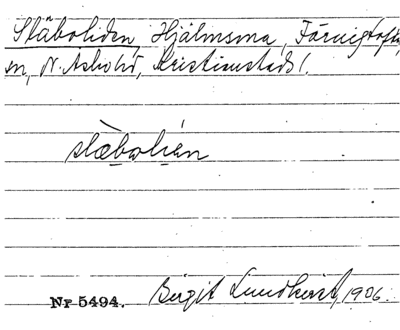 Släboliden, Hjälmsma, Färingtofta
sn, N. Åsbo hd, Kristianstads l.
slæboli̯én
Nr 5494. Birgit Lundkvist, 1936.